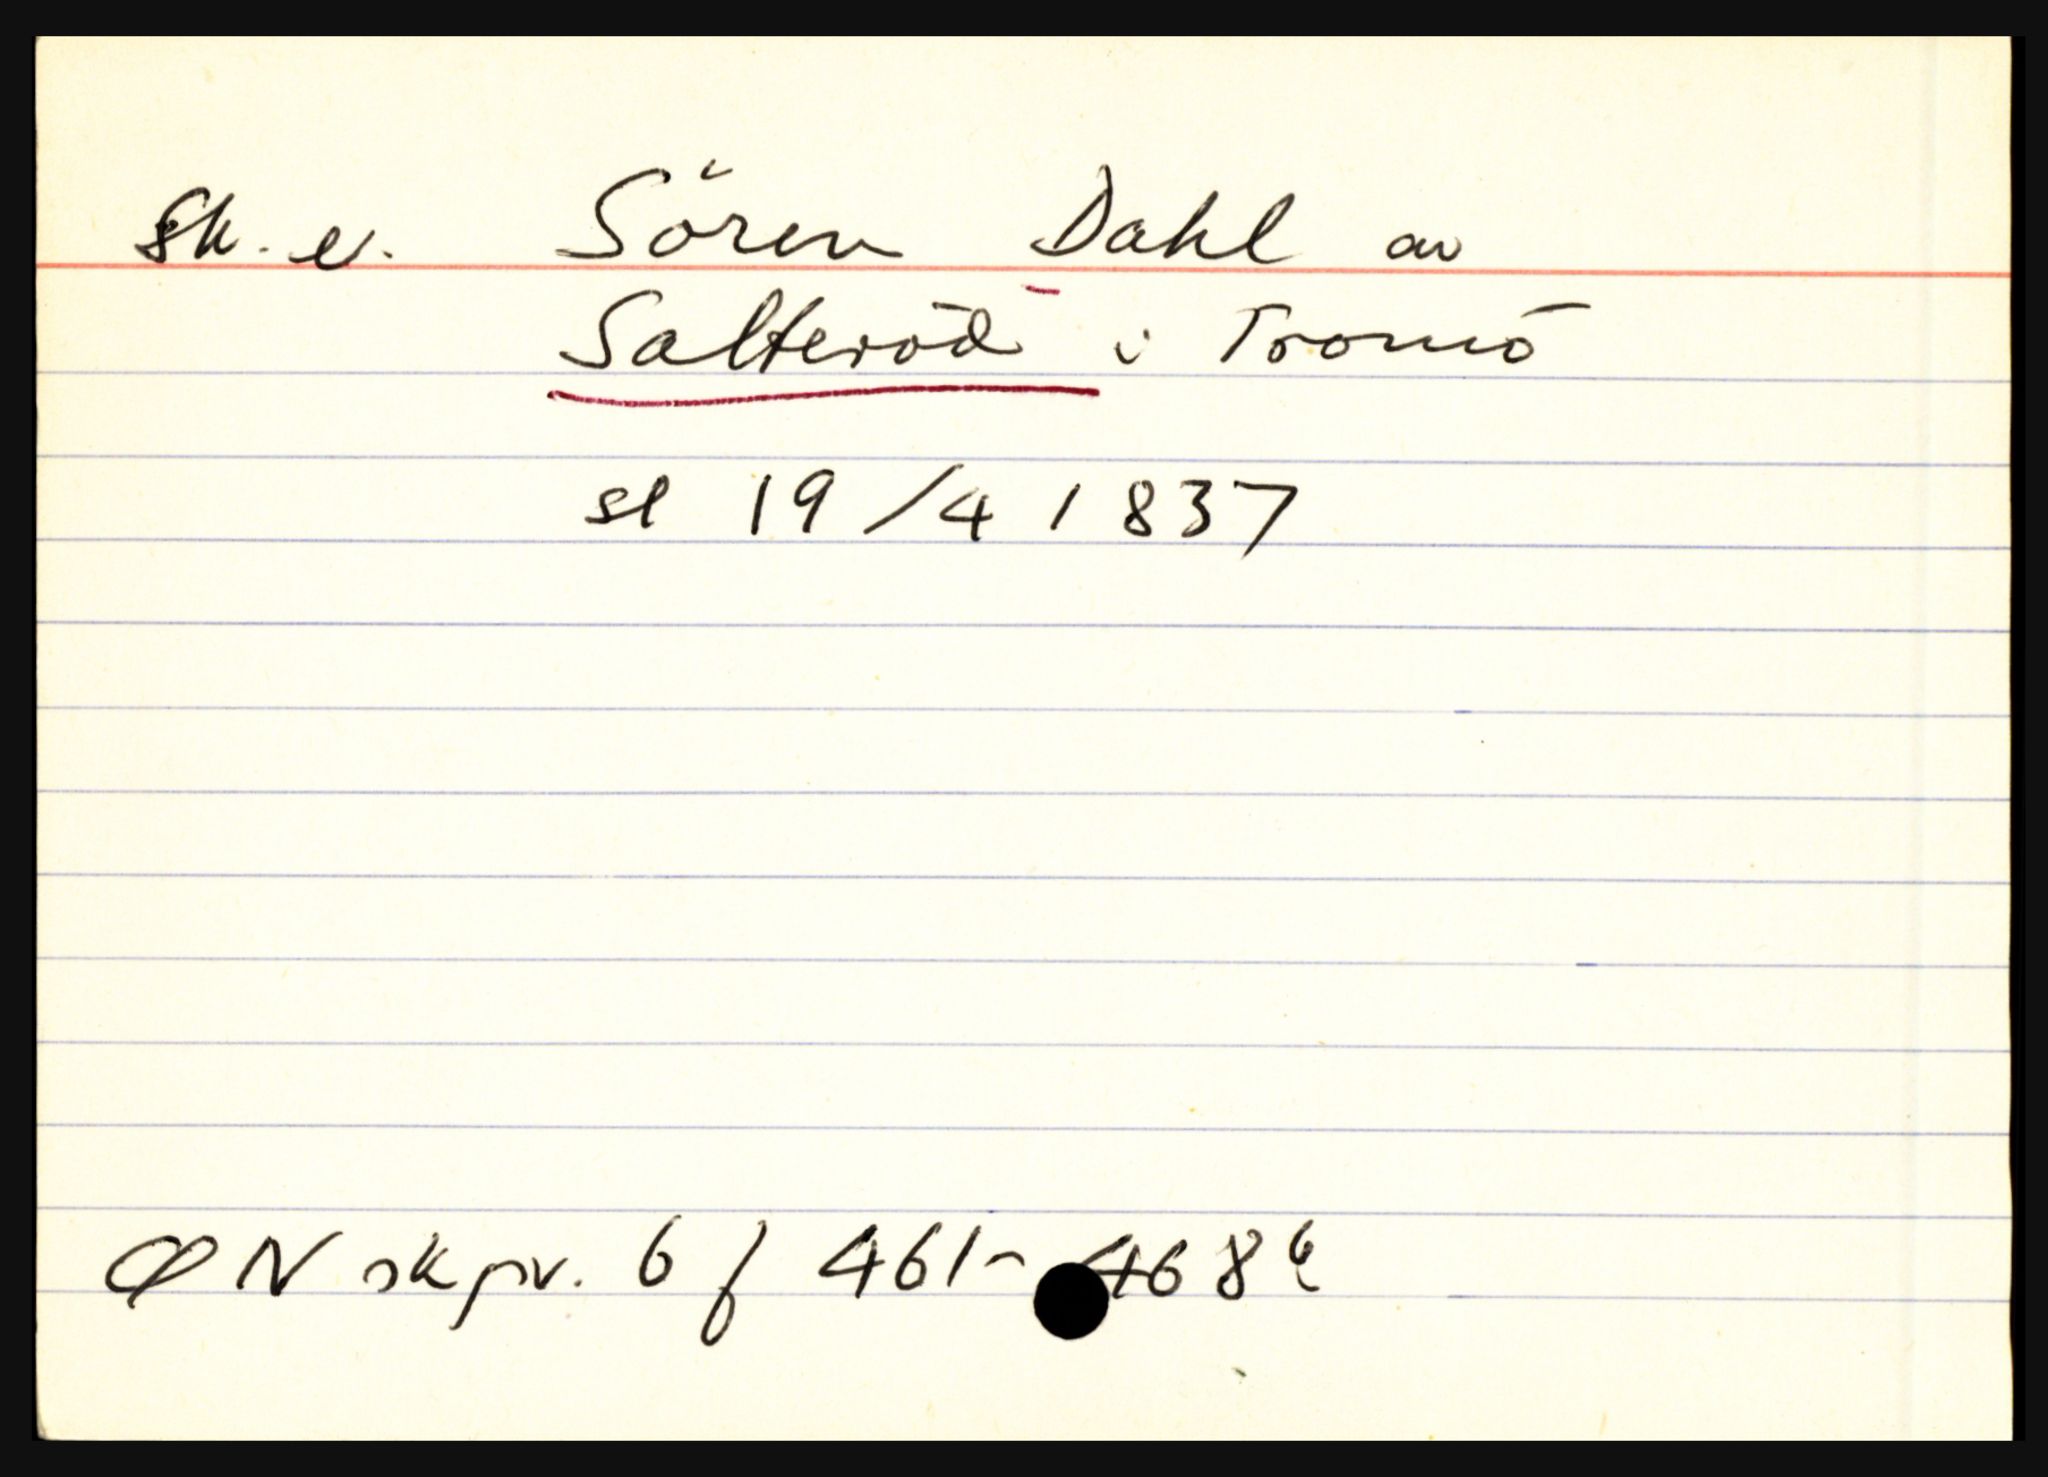 Sk. e. Sören Dahl av
Salteröd i Tromö
sl 19/4 1837
ØN skpr. 6 f 461-468 b